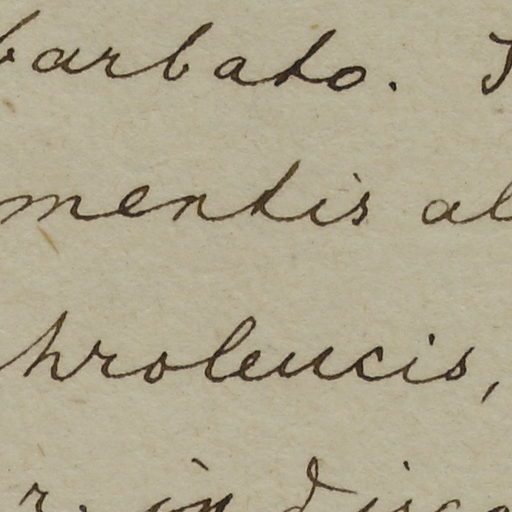 barbato.
mentis al
hroleucis,
r. in disco